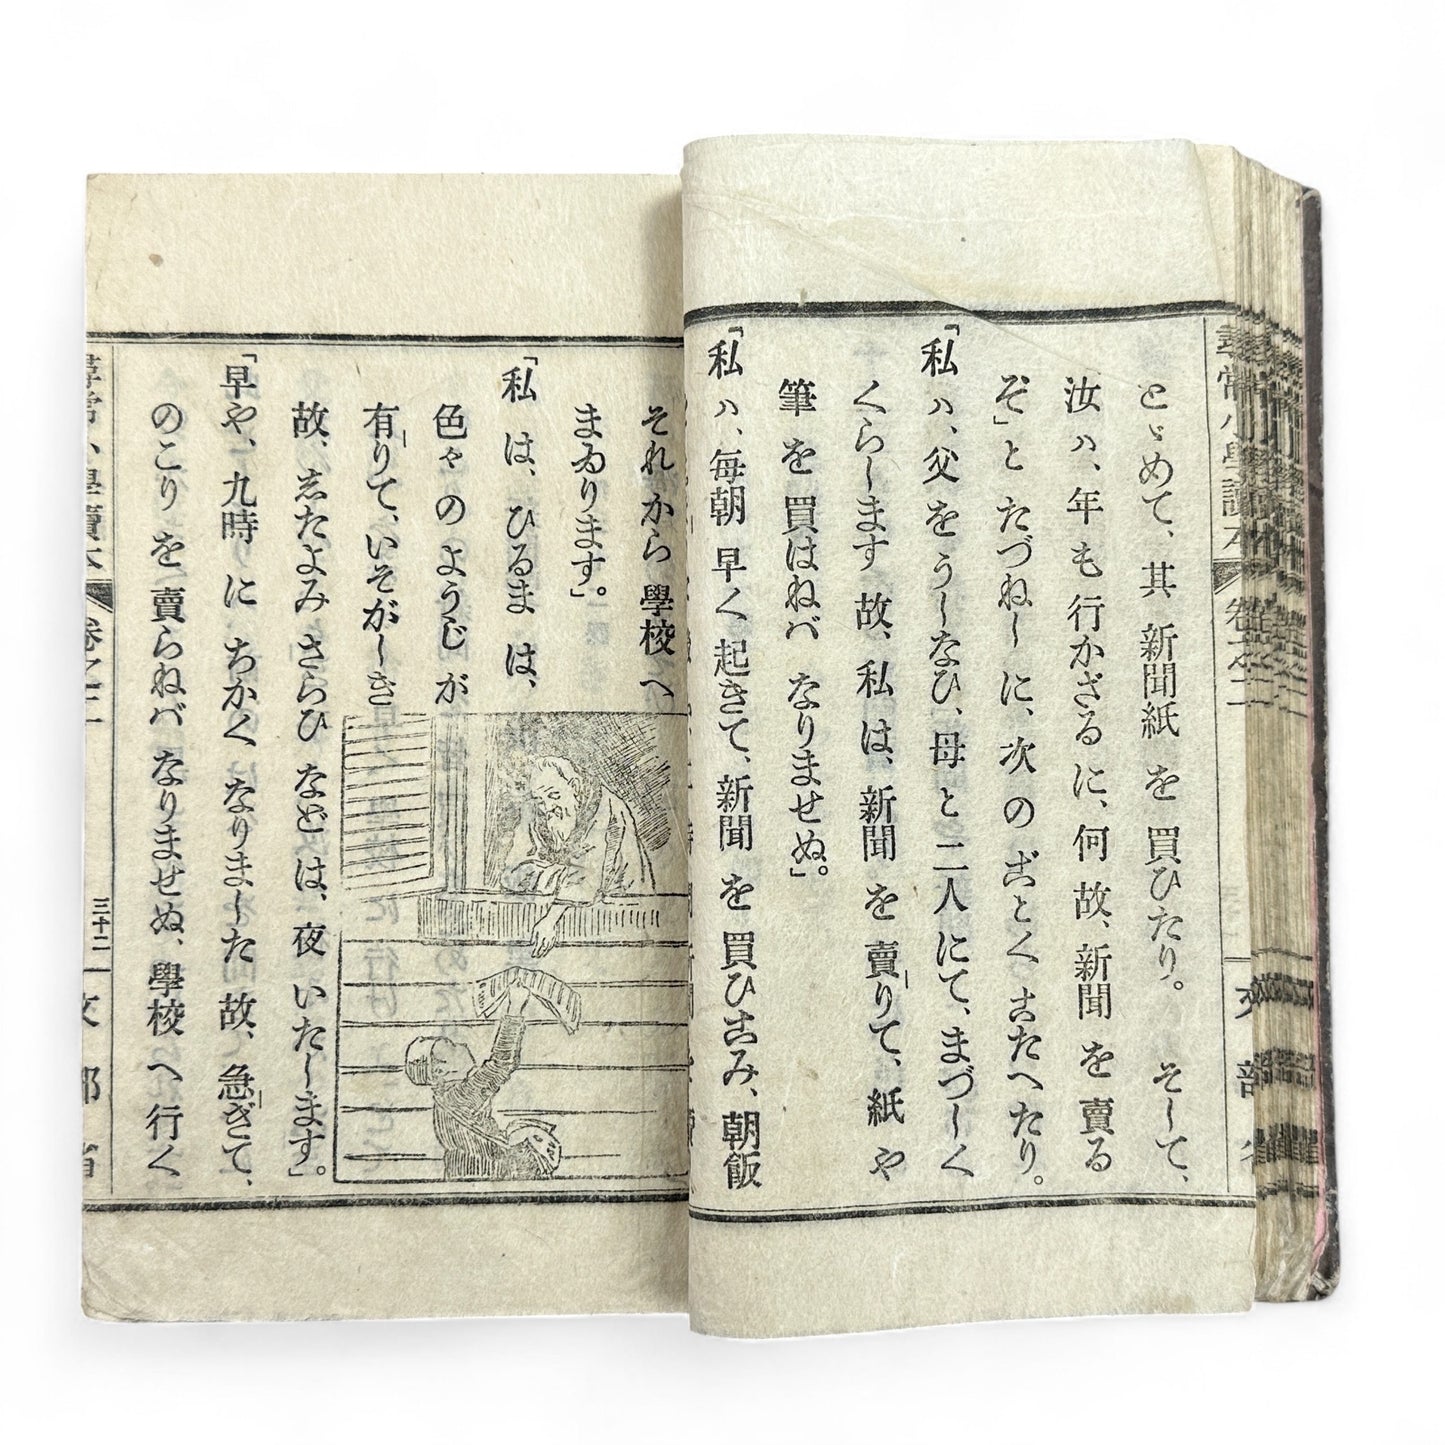 尋常小學讀本
卷之二
とゞめて、其 新聞紙 を 買ひたり。 そして、
汝ハ、年も行かざるに、何故、新聞を賣る
ぞ」とたづねしに、次のごとくこたへたり。
「私ハ、父をうしなひ、母と二人にて、まづしく
くらします故、私は、新聞を賣りて、紙や
筆を買はねバ なりませぬ」。
「私ハ、毎朝 早く 起きて、新聞を買ひこみ、朝飯
それから 學校へ
まゐります。」
「私は、ひるまは、
色々のようじが
有りて、いそがしき
故、したよみ さらひ などは、夜 いたします」。
「早や、九時 に ちかく なりました 故、急ぎて、
のこりを賣らねバ なりませぬ、學校へ行く
尋常小學讀本
卷之二
三十二
文部省